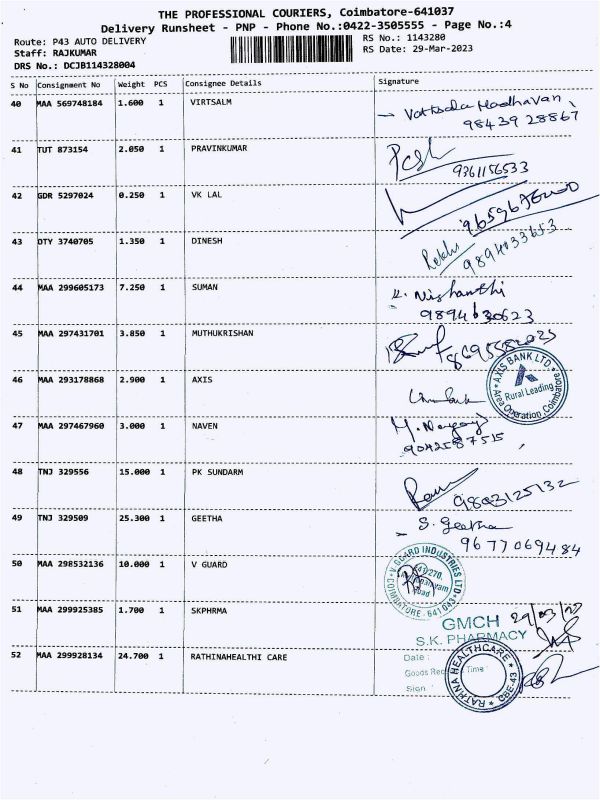 THE PROFESSIONAL COURIERS, Coimbatore-641037
Delivery Runsheet - PNP - Phone No.:0422-3505555 - Page No.:4
Route: P43 AUTO DELIVERY
RS No.: 1143280
Staff: RAJKUMAR
RS Date: 29-Mar-2023
DRS No.: DCJB114328004
S No Consignment No Weight PCS Consignee Details Signature
40 MAA 569748184 1.600 1 VIRTSALM
Vattsala Madhavan
98439 28867
41 TUT 873154 2.050 1 PRAVINKUMAR
9361156533
42 GDR 5297024 0.250 1 VK LAL
43 OTY 3740705 1.350 1 DINESH
9894033653
44 MAA 299605173 7.250 1 SUMAN
K. Nishanthi
9894630623
45 MAA 297431701 3.850 1 MUTHUKRISHAN
46 MAA 293178868 2.900 1 AXIS
AXIS BANK LTD.
Rural Leading
Area Operation Coimbatore
47 MAA 297467960 3.000 1 NAVEN
9042587515
48 TNJ 329556 15.000 1 PK SUNDARM
9803125132
49 TNJ 329509 25.300 1 GEETHA
S. Geetha
9677069484
50 MAA 298532136 10.000 1 V GUARD
V GUARD INDUSTRIES LTD.
COIMBATORE - 641 043
51 MAA 299925385 1.700 1 SKPHRMA
GMCH
S.K. PHARMACY
52 MAA 299928134 24.700 1 RATHINAHEALTHI CARE
Date :
Goods Rec Time :
Sign :
RATHNA HEALTHCARE
CBE-43